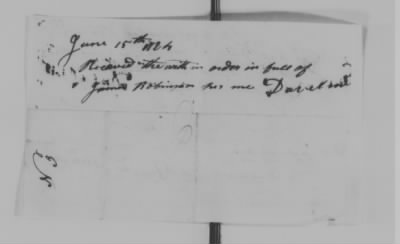 June 15th 1824
Received the within order in full of
James Robinson per me
No 3